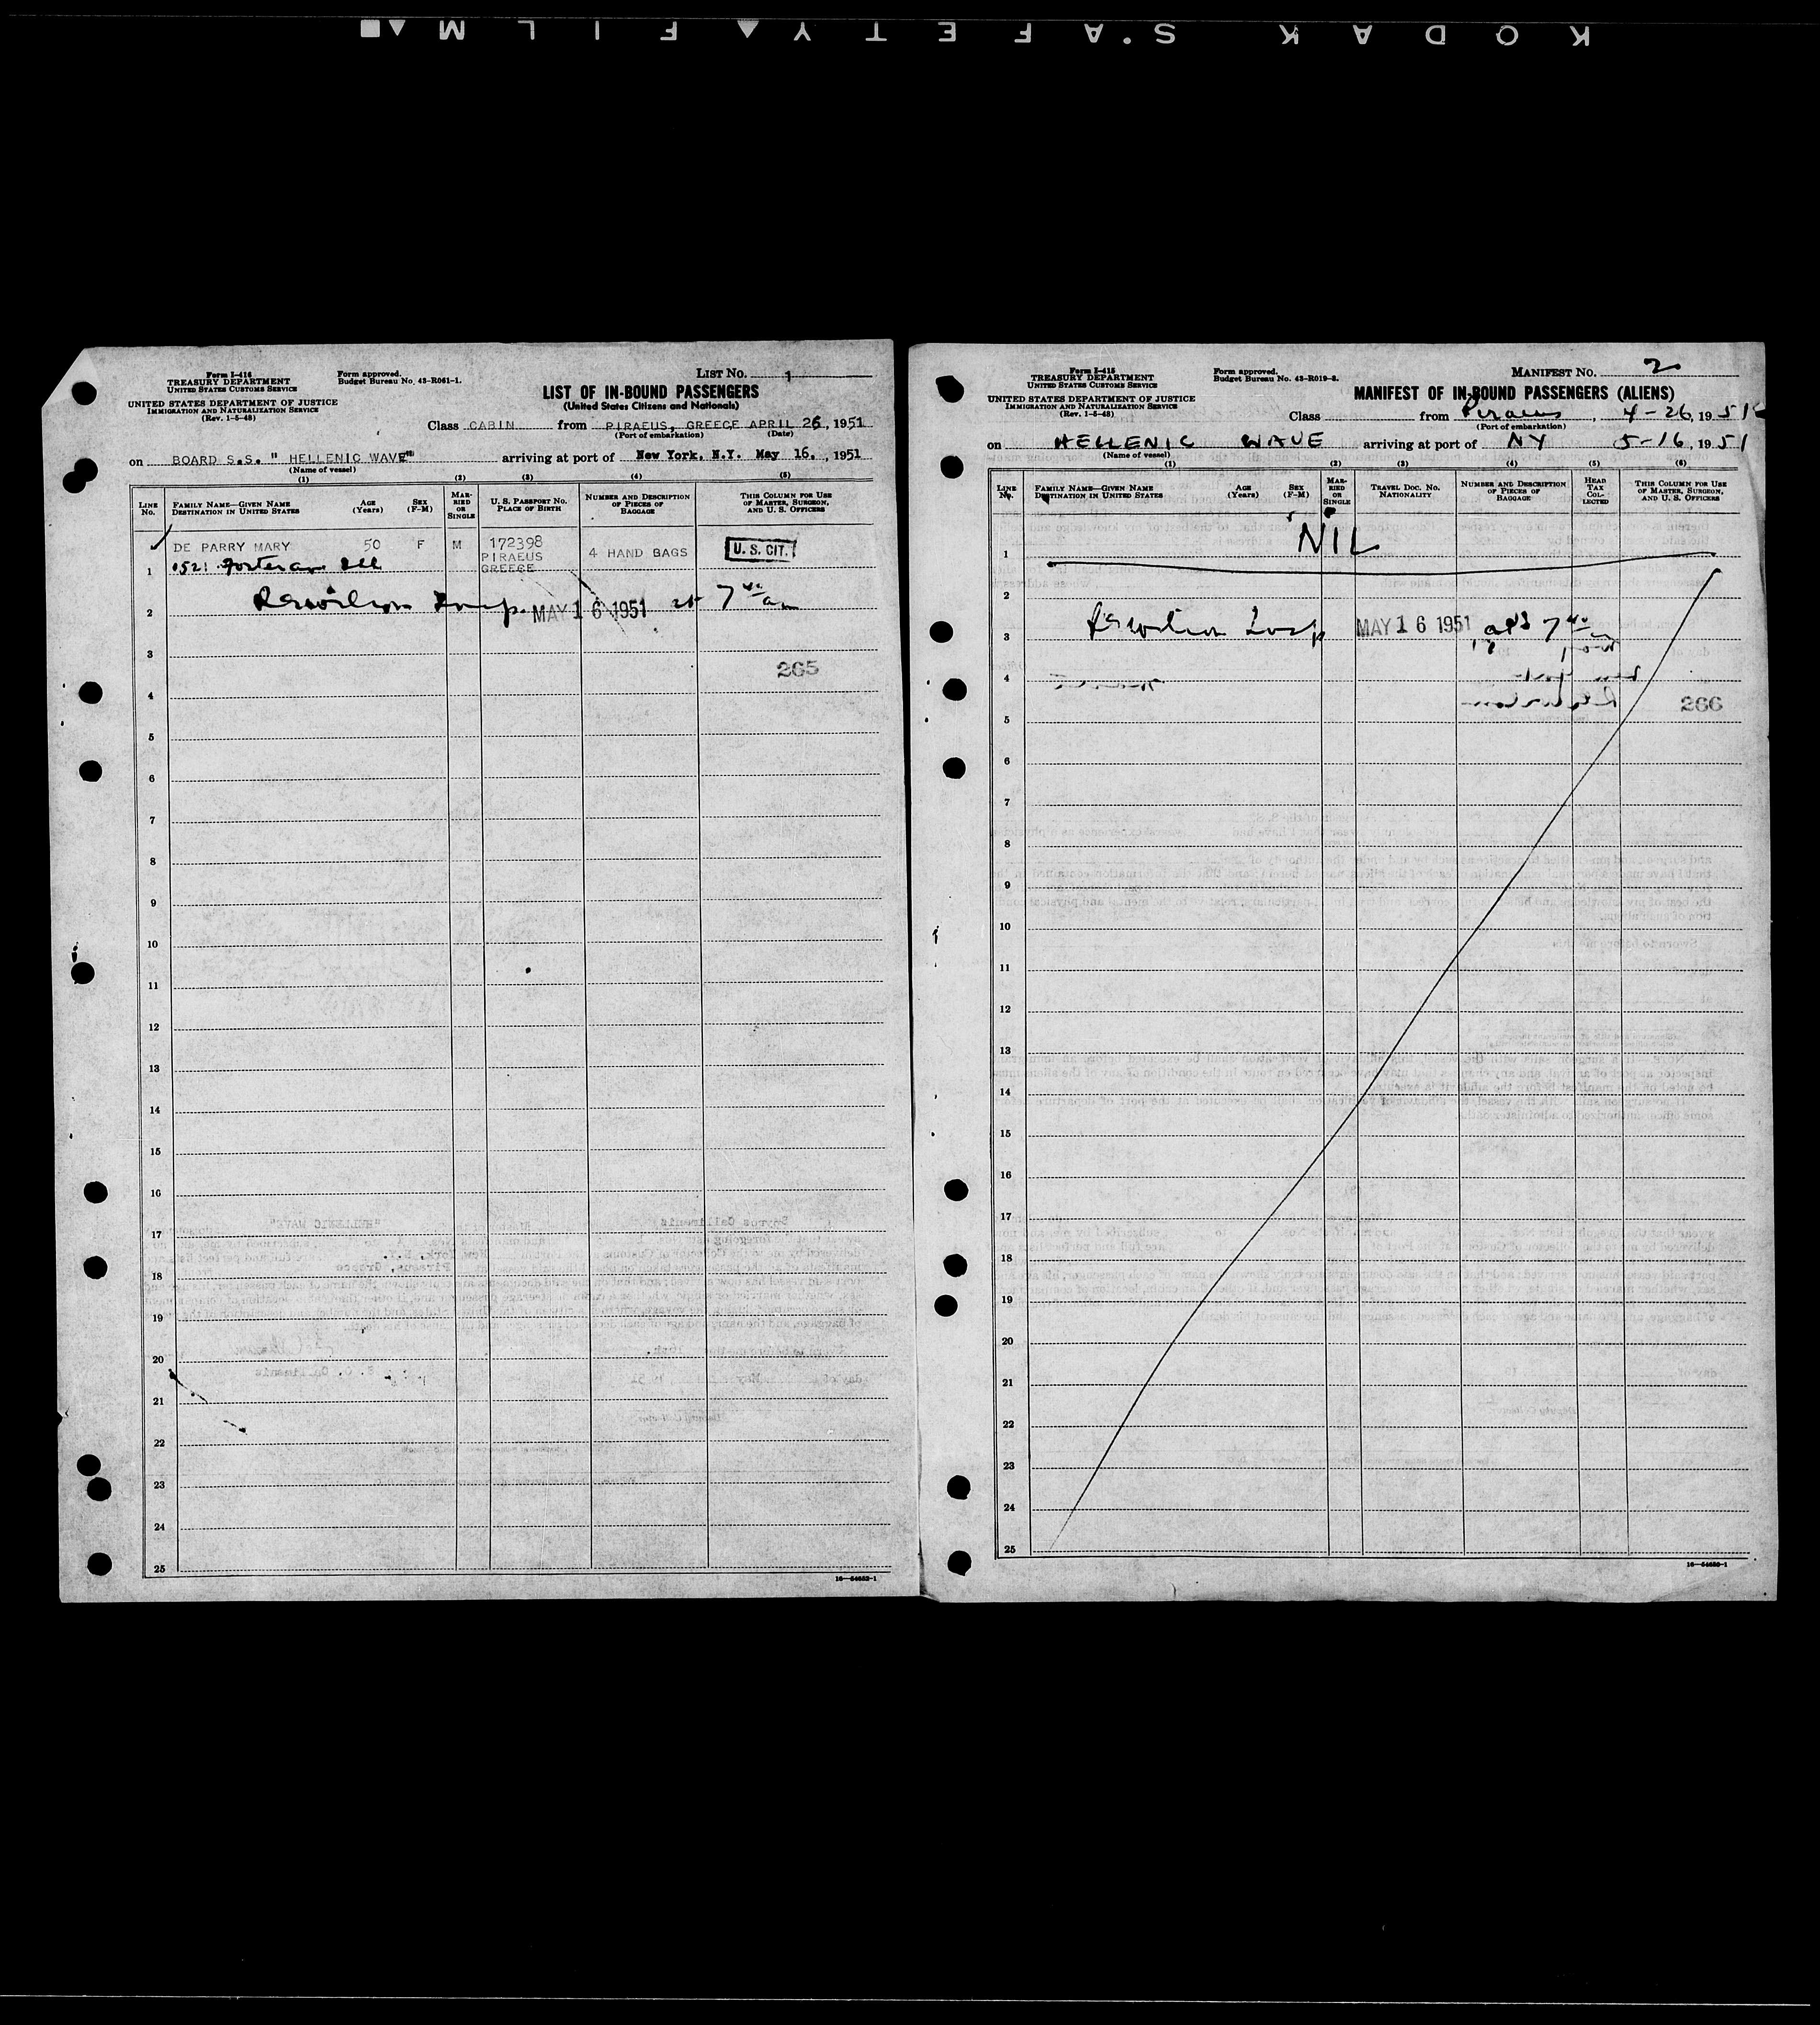 KODAK SAFETY FILM
Form I-416
TREASURY DEPARTMENT
UNITED STATES CUSTOMS SERVICE
UNITED STATES DEPARTMENT OF JUSTICE
IMMIGRATION AND NATURALIZATION SERVICE
(Rev. 1-5-48)
Form approved.
Budget Bureau No. 43-R061-1.
LIST NO. 1
LIST OF IN-BOUND PASSENGERS
(United States Citizens and Nationals)
Class CABIN from PIRAEUS, GREECE APRIL 26, 1951
(Port of embarkation) (Date)
on BOARD S.S. " HELLENIC WAVE" arriving at port of New York, N.Y. May 16. , 1951
(Name of vessel)
(1) (2) (3) (4) (5)
LINE No.
FAMILY NAME—GIVEN NAME
DESTINATION IN UNITED STATES
AGE (Years)
SEX (F-M)
MARRIED OR SINGLE
U. S. PASSPORT NO.
PLACE OF BIRTH
NUMBER AND DESCRIPTION OF PIECES OF BAGGAGE
THIS COLUMN FOR USE OF MASTER, SURGEON, AND U. S. OFFICERS
DE PARRY MARY 50 F M 172398 4 HAND BAGS U. S. CIT.
PIRAEUS
GREECE
1
2 MAY 16 1951 at 7 40 am
3
265
4
5
6
7
8
9
10
11
12
13
14
15
16
17
18
19
20
21
22
23
24
25
16—54682-1
Form I-415
TREASURY DEPARTMENT
UNITED STATES CUSTOMS SERVICE
UNITED STATES DEPARTMENT OF JUSTICE
IMMIGRATION AND NATURALIZATION SERVICE
(Rev. 1-5-48)
Form approved.
Budget Bureau No. 43-R019-3.
MANIFEST NO. 2
MANIFEST OF IN-BOUND PASSENGERS (ALIENS)
Class from Piraeus , 4-26, 1951
(Port of embarkation)
on HELLENIC WAVE arriving at port of NY 5-16, 1951
(Name of vessel)
(1) (2) (3) (4) (5) (6)
LINE No.
FAMILY NAME—GIVEN NAME
DESTINATION IN UNITED STATES
AGE (Years)
SEX (F-M)
MARRIED OR SINGLE
TRAVEL DOC. NO.
NATIONALITY
NUMBER AND DESCRIPTION OF PIECES OF BAGGAGE
HEAD TAX COLLECTED
THIS COLUMN FOR USE OF MASTER, SURGEON, AND U. S. OFFICERS
NIL
1
2
3 MAY 16 1951 7 40
4
266
5
6
7
8
9
10
11
12
13
14
15
16
17
18
19
20
21
22
23
24
25